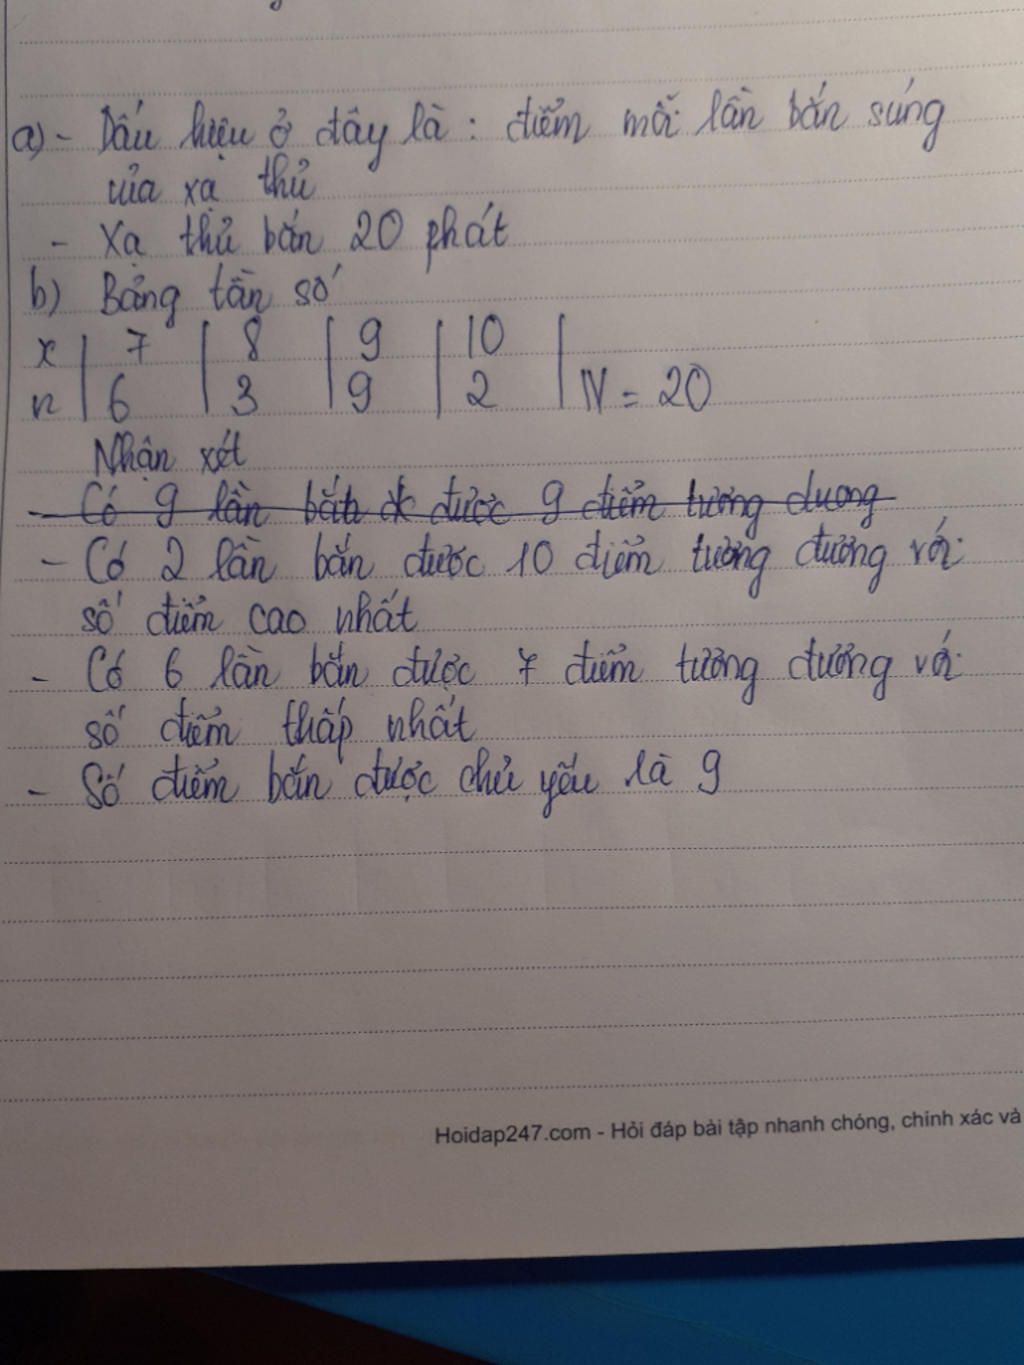 a) - Dấu hiệu ở đây là : điểm mỗi lần bắn súng
của xạ thủ
- Xạ thủ bắn 20 phát
b) Bảng tần số
x | 7 | 8 | 9 | 10 |
n | 6 | 3 | 9 | 2 | N = 20
Nhận xét
- Có 9 lần bắn được 9 điểm tương đương
- Có 2 lần bắn được 10 điểm tương đương với
số điểm cao nhất
- Có 6 lần bắn được 7 điểm tương đương với
số điểm thấp nhất
- Số điểm bắn được chủ yếu là 9
Hoidap247.com - Hỏi đáp bài tập nhanh chóng, chính xác và